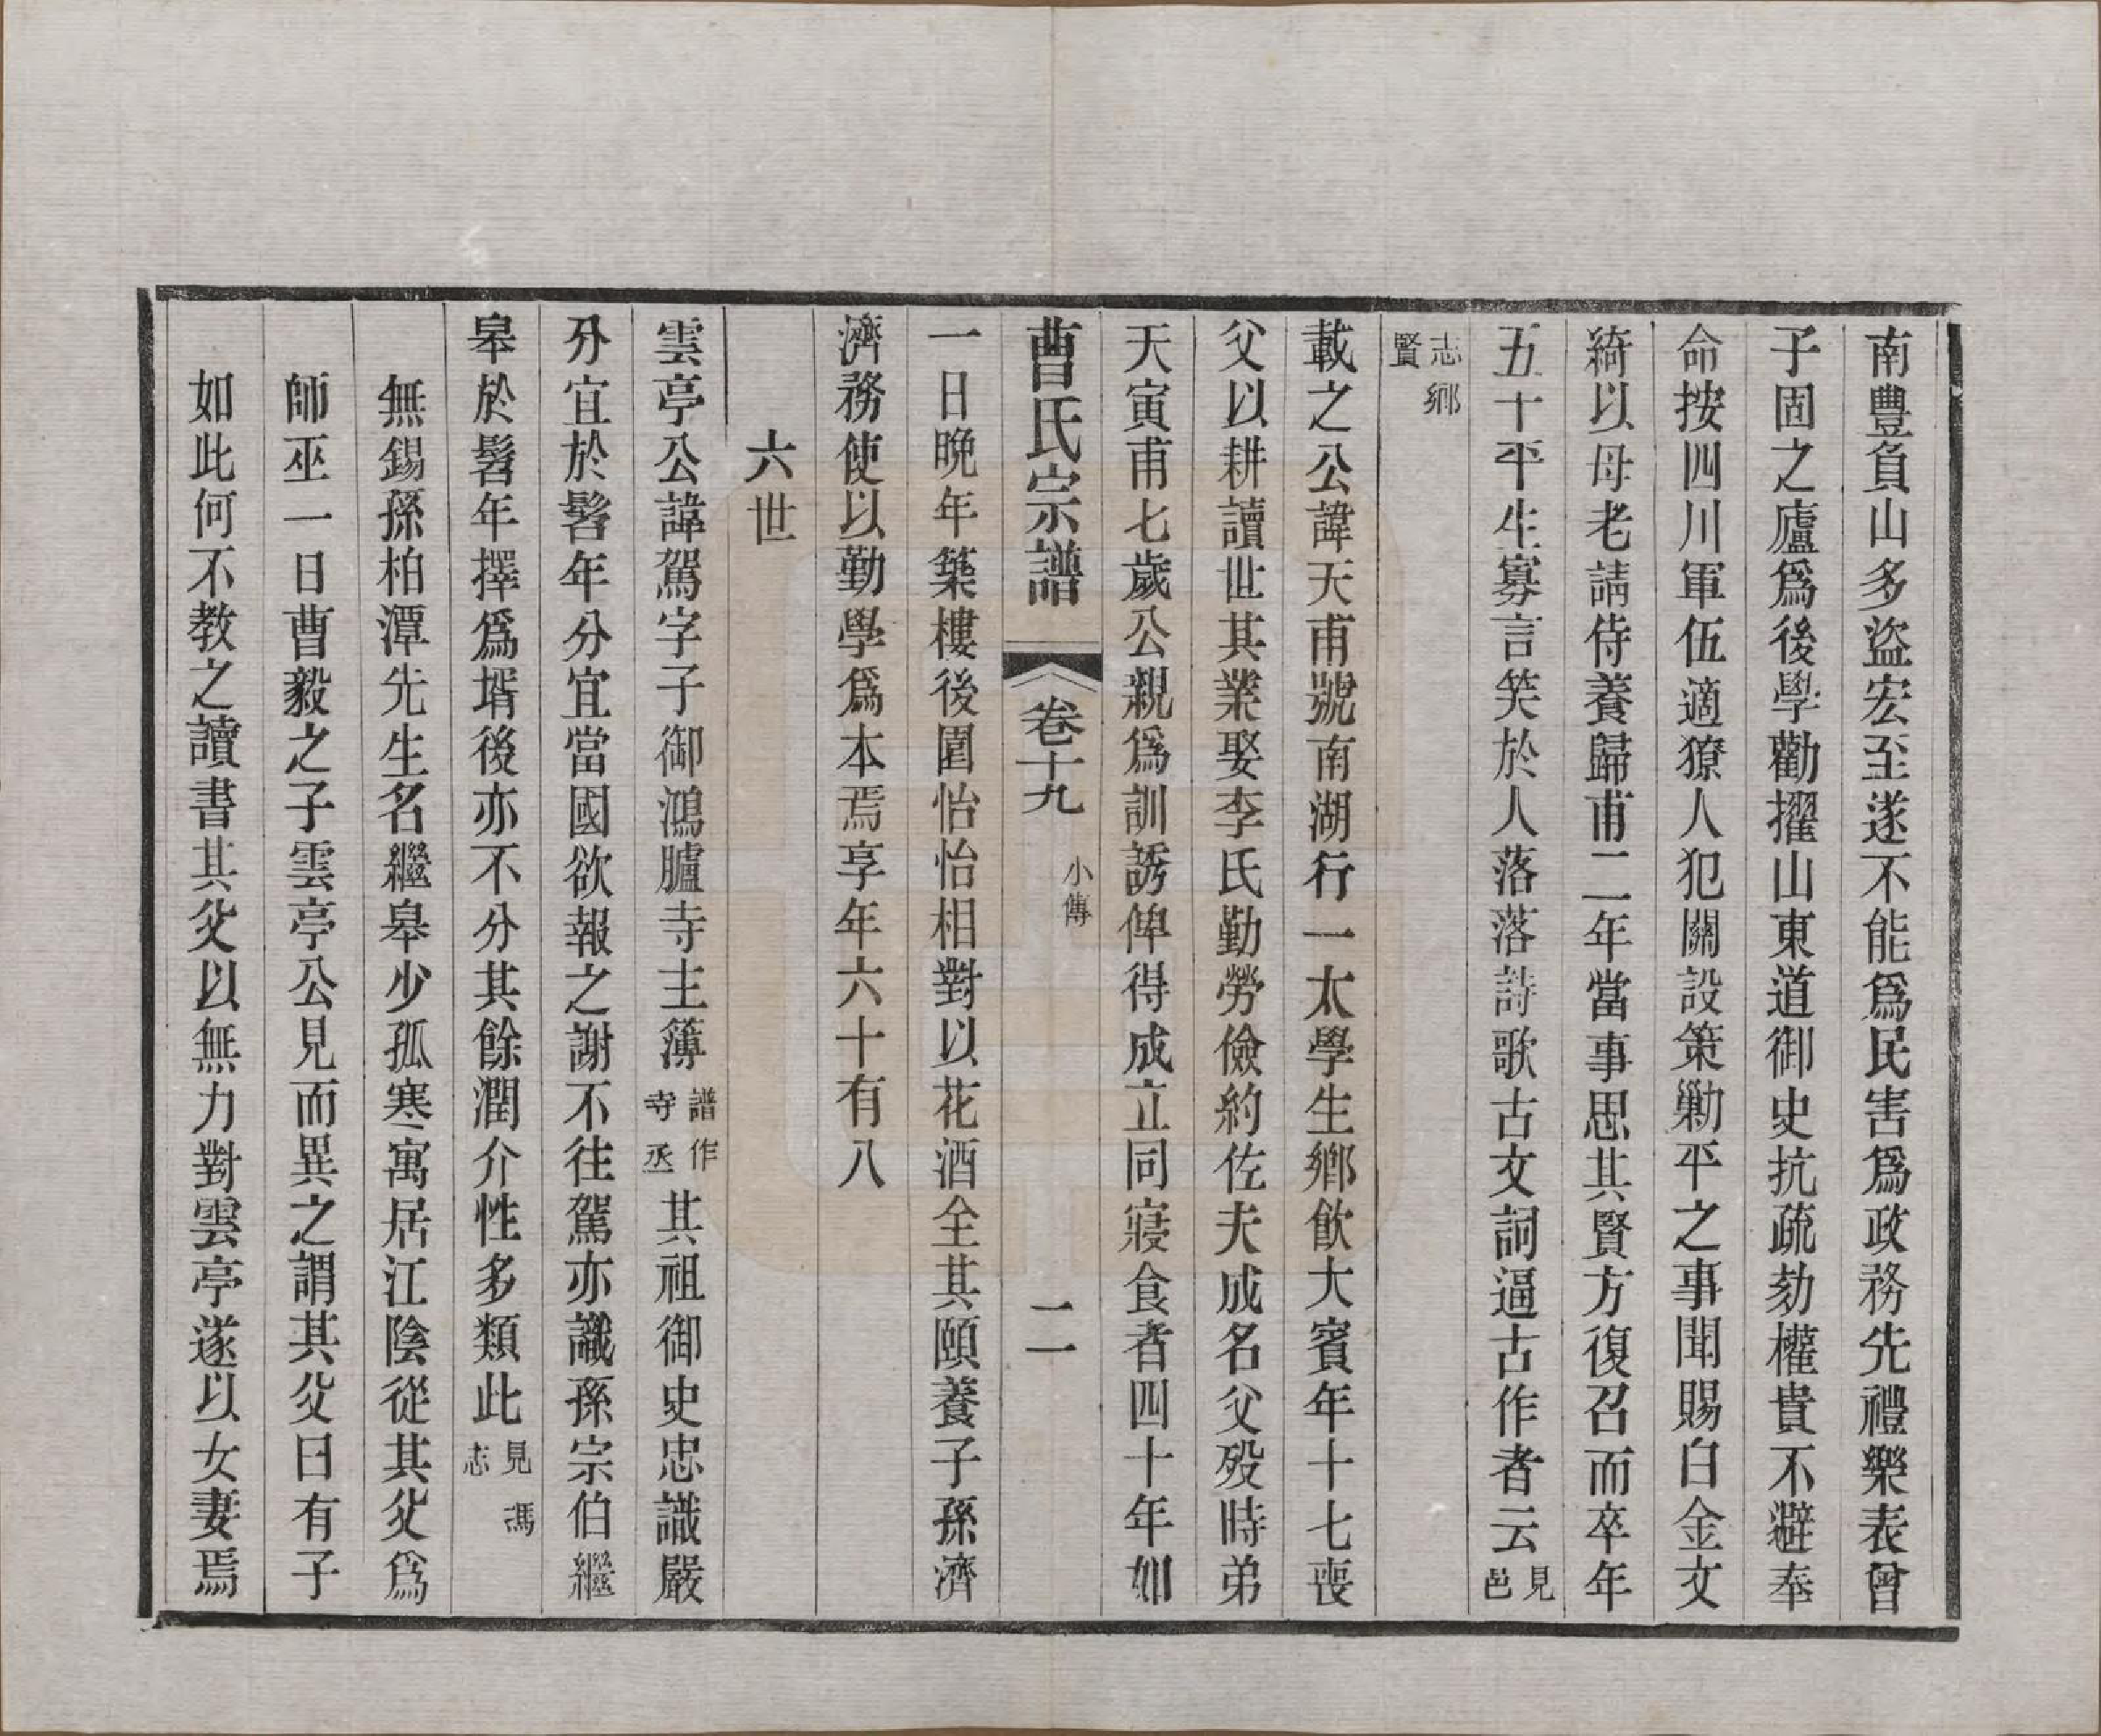 南豐負山多盜宏至遂不能爲民害爲政務先禮樂表曾
子固之廬爲後學勸擢山東道御史抗疏劾權貴不避奉
命按四川軍伍適獠人犯關設策勦平之事聞賜白金文
綺以母老請侍養歸甫二年當事思其賢方復召而卒年
五十平生寡言笑於人落落詩歌古文詞逼古作者云見邑
志鄉賢
載之公諱天甫號南湖行一太學生鄉飲大賓年十七喪
父以耕讀世其業娶李氏勤勞儉約佐夫成名父歿時弟
天寅甫七歲公親爲訓誘俾得成立同寢食者四十年如
曹氏宗譜 卷十九 小傳 二
一日晚年築樓後圍怡怡相對以花酒全其頤養子孫濟
濟務使以勤學爲本焉享年六十有八
六世
雲亭公諱駕字子御鴻臚寺主簿譜作寺丞其祖御史忠識嚴
分宜於髫年分宜當國欲報之謝不往駕亦識孫宗伯繼
皋於髫年擇爲壻後亦不分其餘潤介性多類此見馮志
無錫孫柏潭先生名繼皋少孤寒寓居江陰從其父爲
師巫一日曹毅之子雲亭公見而異之謂其父曰有子
如此何不教之讀書其父以無力對雲亭遂以女妻焉